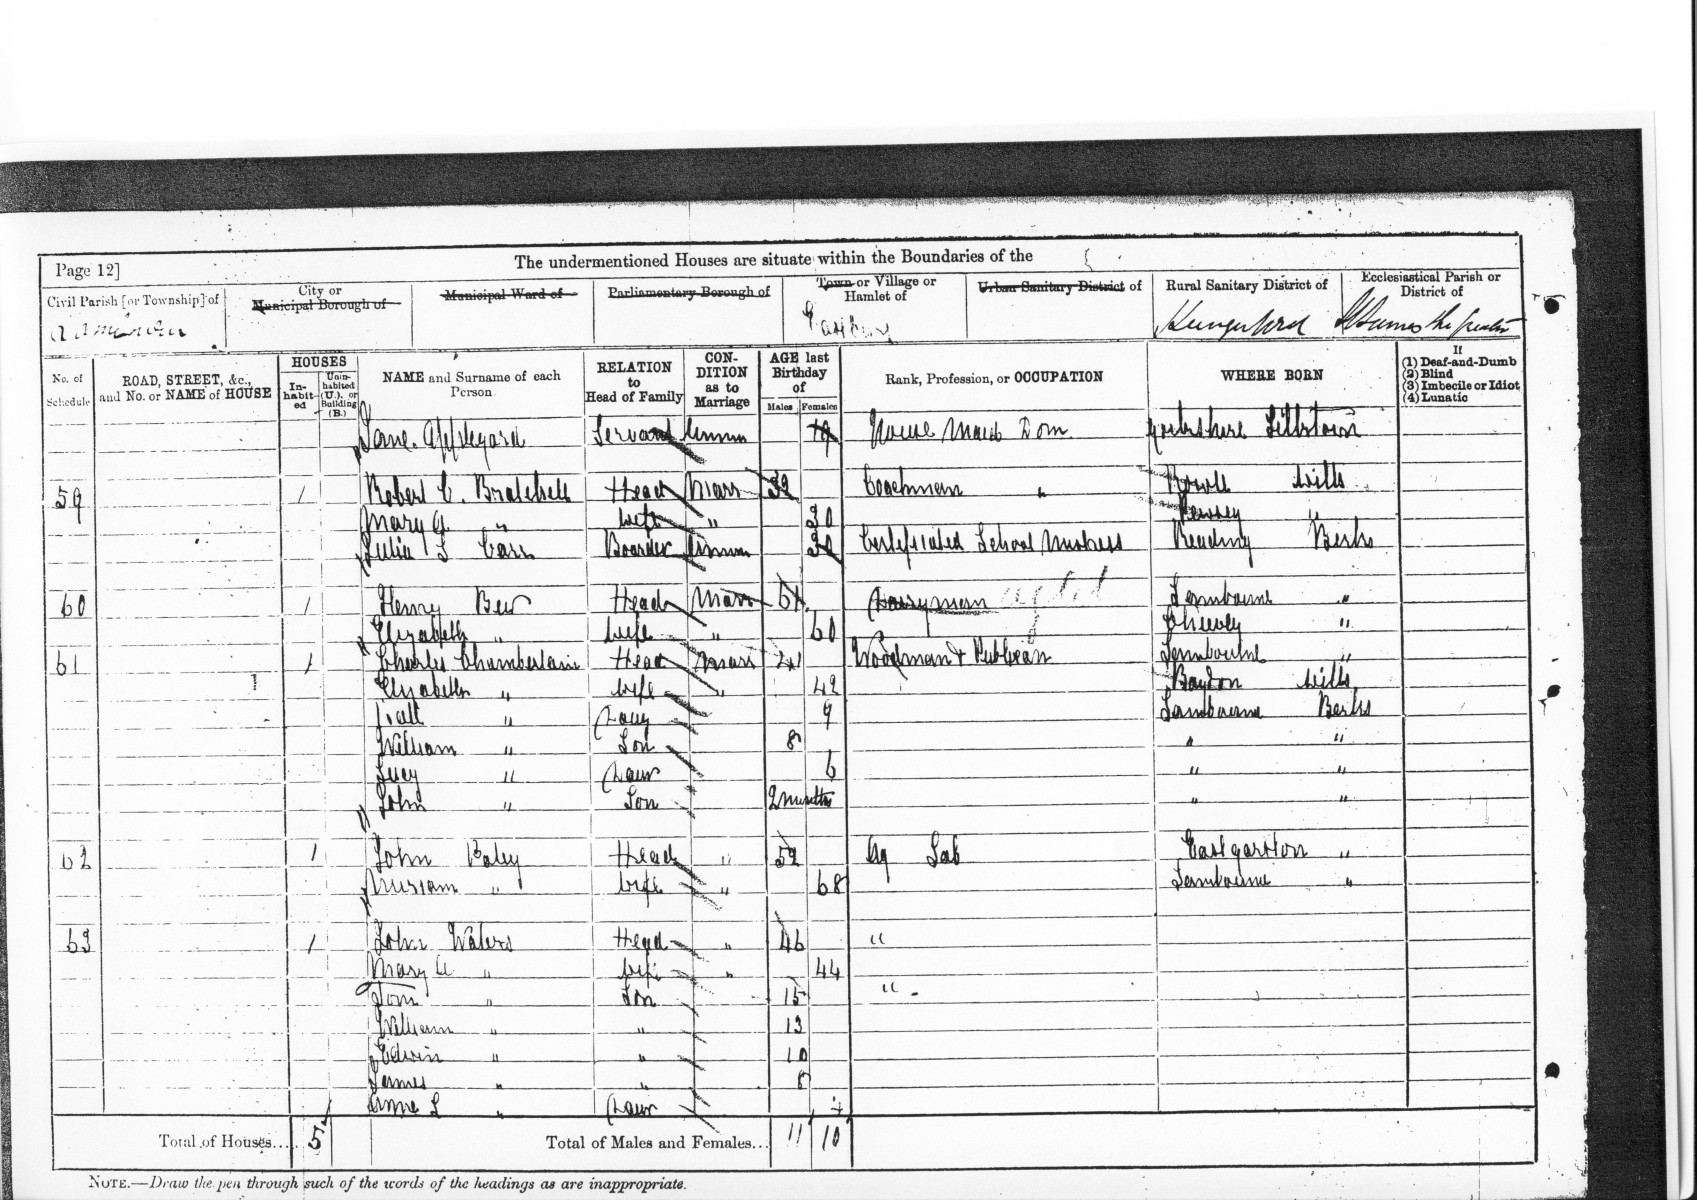 Page 12]
The undermentioned Houses are situate within the Boundaries of the
Civil Parish [or Township] of
City or Municipal Borough of
Municipal Ward of
Parliamentary Borough of
Town or Village or Hamlet of
Urban Sanitary District of
Rural Sanitary District of
Hungerford
Ecclesiastical Parish or District of
St James the Greater
No. of Schedule
ROAD, STREET, &c., and No. or NAME of HOUSE
HOUSES
In-habit-ed
Unin-habited (U.), or Building (B.)
NAME and Surname of each Person
RELATION to Head of Family
CON-DITION as to Marriage
AGE last Birthday of
Males Females
Rank, Profession, or OCCUPATION
WHERE BORN
If
(1) Deaf-and-Dumb
(2) Blind
(3) Imbecile or Idiot
(4) Lunatic
Jane Applegard Servant Unmar 19 House Maid Dom Yorkshire
59 1 Robert C. Bratchell Head Marr 32 Coachman " Wilts
Mary A. " Wife " 30 Pewsey "
Julia S Carr Boarder Unmar 30 Certificated School Mistress Reading Berks
60 1 Henry Bew Head Marr 61 Dairyman Lambourne "
Elizabeth " Wife " 60 Chievey "
61 1 Charles Chamberlain Head Marr 41 Woodman & Publican Lambourne "
Elizabeth " Wife " 42 Baydon Wilts
" Daug 9 Lambourne Berks
William " Son 8 " "
Lucy " Daur 6 " "
John " Son 2 months " "
62 1 John Baley Head " 52 Ag Lab Eastgarston "
Miriam " Wife " 68 Lambourne "
63 1 John Waters Head " 46 "
Mary A " Wife " 44
Tom " Son 15 "
William " " 13
Edwin " " 10
James " " 8
Anne L " Daur
Total of Houses.... 5 Total of Males and Females... 11 10
NOTE.—Draw the pen through such of the words of the headings as are inappropriate.